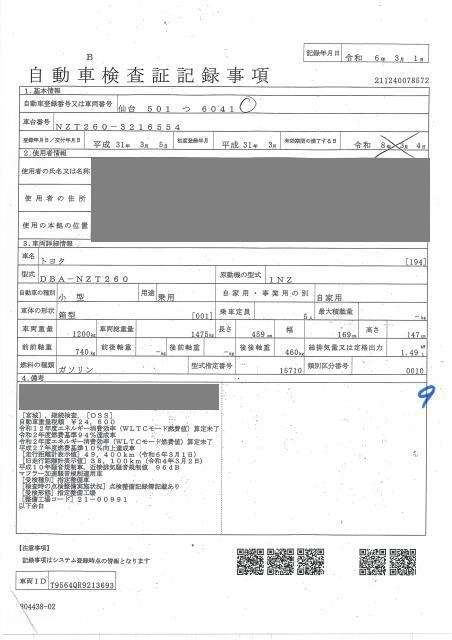 記録年月日 令和 6年 3月 1日
B
自動車検査証記録事項
211240078572
1.基本情報
自動車登録番号又は車両番号 仙台 501 つ 6041
車台番号 NZT260-3216554
登録年月日/交付年月日 平成 31年 3月 5日 初度登録年月 平成 31年 3月 有効期間の満了する日 令和 8年 3月 4日
2.使用者情報
使用者の氏名又は名称
使用者の住所
使用の本拠の位置
3.車両詳細情報
車名 トヨタ [194]
型式 DBA-NZT260 原動機の型式 1NZ
自動車の種別 小型 用途 乗用 自家用・事業用の別 自家用
車体の形状 箱型 [001] 乗車定員 5人 最大積載量 -kg
車両重量 1200kg 車両総重量 1475kg 長さ 459cm 幅 169cm 高さ 147cm
前前軸重 740kg 前後軸重 -kg 後前軸重 -kg 後後軸重 460kg 総排気量又は定格出力 1.49
燃料の種類 ガソリン 型式指定番号 15710 類別区分番号 0010
4.備考
9
[宮城],継続検査,[OSS]
自動車重量税額 ¥24,600
令和12年度エネルギー消費効率(WLTCモード燃費値)算定未了
令和2年度燃費基準94%達成車
令和2年度エネルギー消費効率(WLTCモード燃費値)算定未了
平成27年度燃費基準10%向上達成車
[走行距離計表示値]49,400km(令和6年3月1日)
[旧走行距離計表示値]38,100km(令和4年3月2日)
平成10年騒音規制車,近接排気騒音規制値 96dB
マフラー加速騒音規制適用車
[受検種別]指定整備車
[検査時の点検整備実施状況]点検整備記録簿記載あり
[受検形態]指定整備工場
[整備工場コード]21-00991
以下余白
【注意事項】
記録事項はシステム登録時点の情報となります
車両ID T9564QR9213693
304438-02